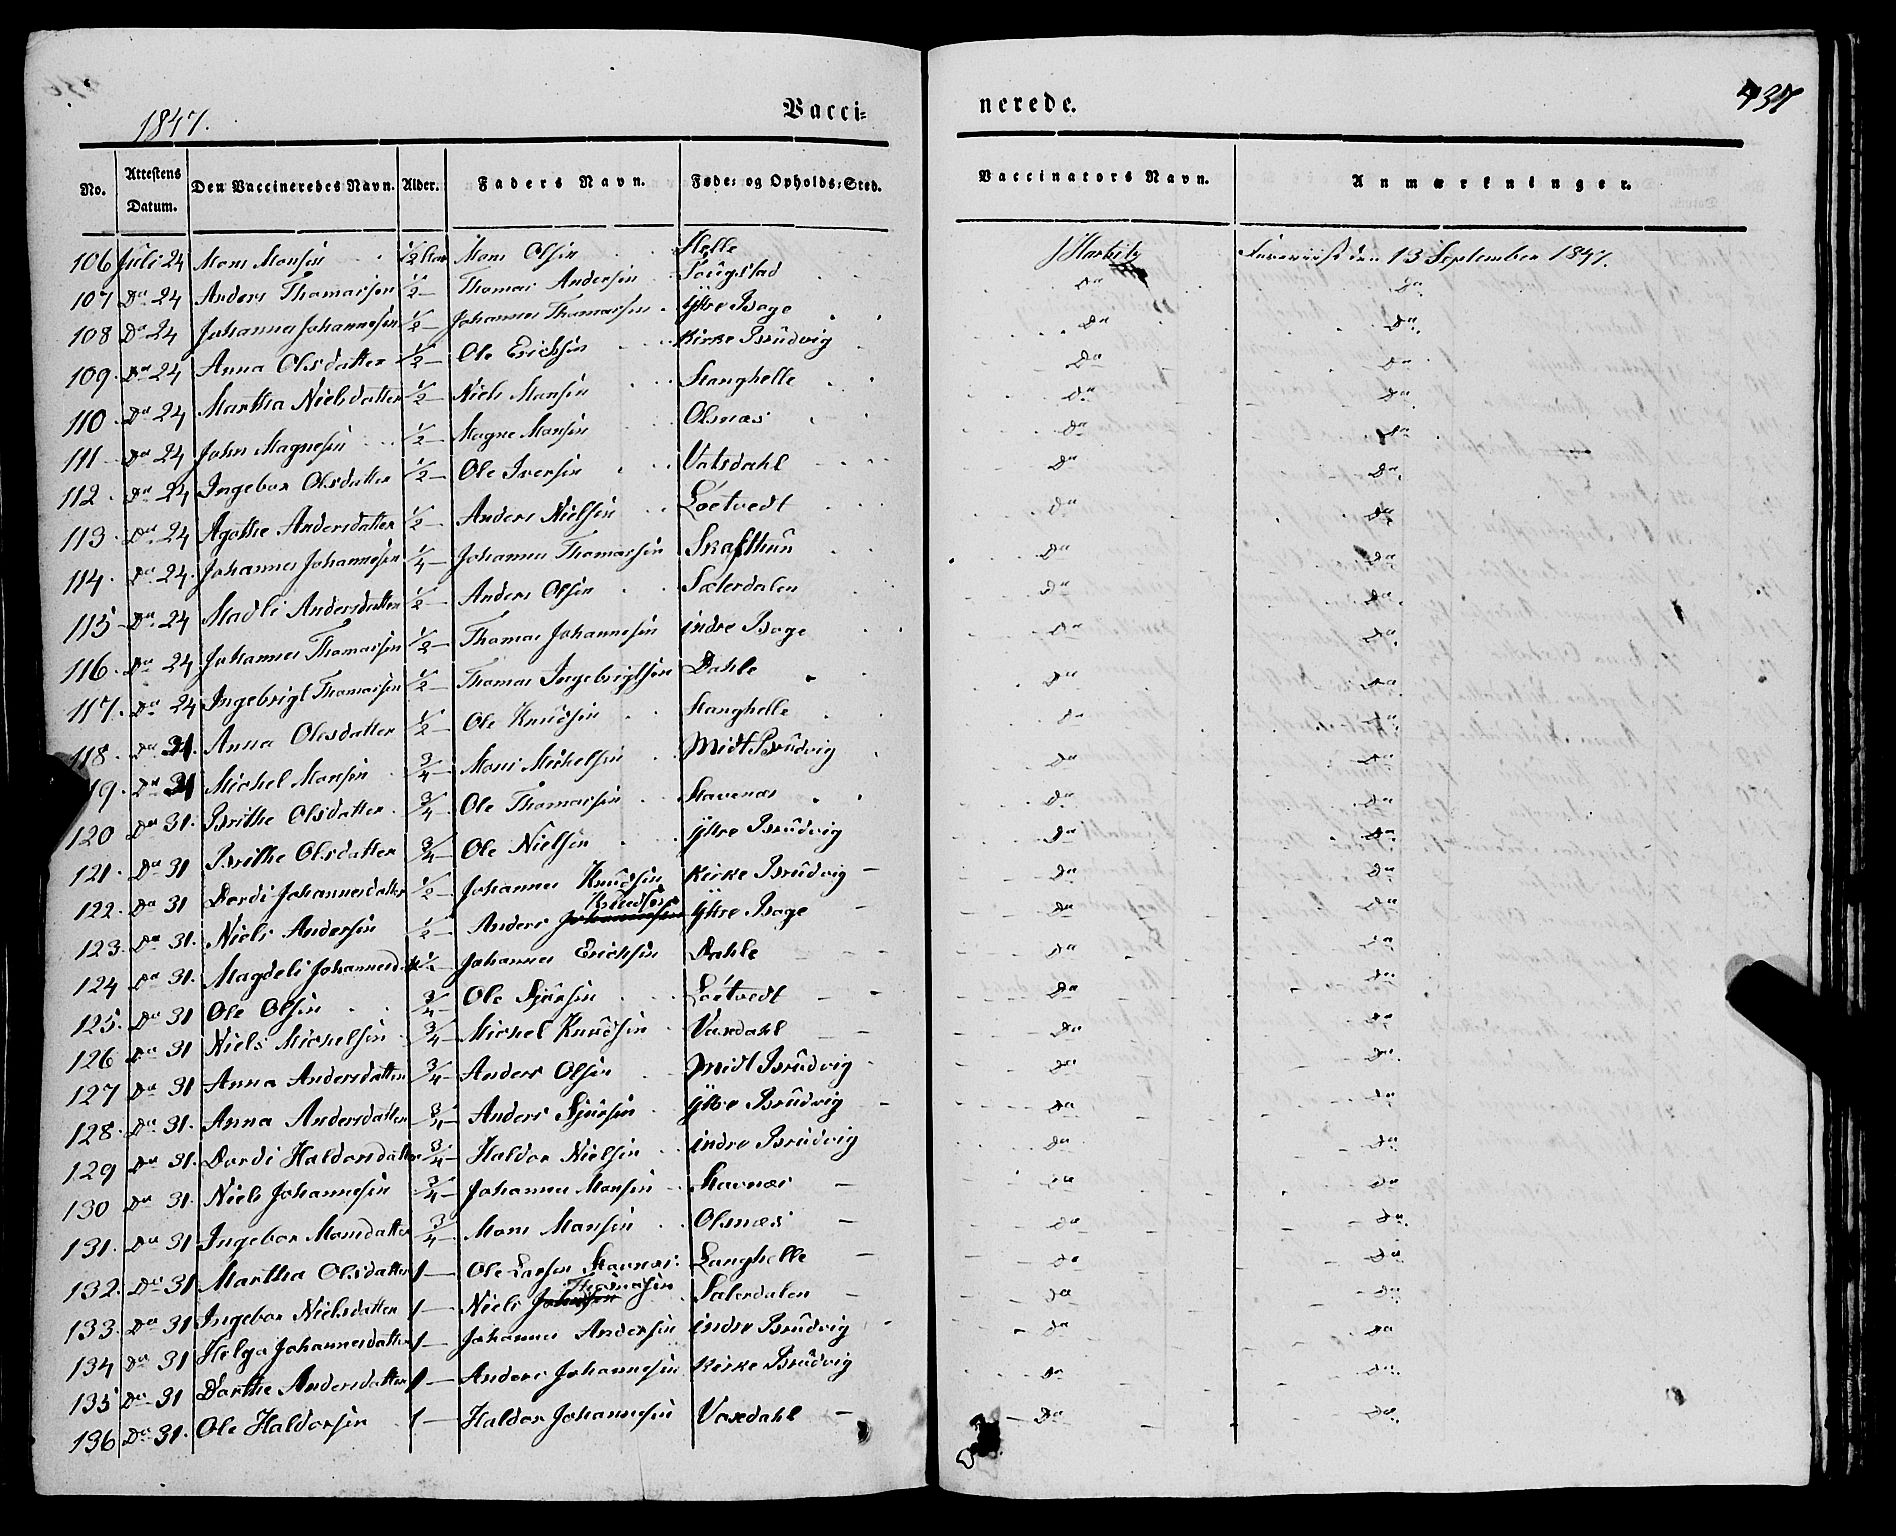 1847.
Vacci=
nerede.
No. Attestens Datum. Den Vaccineredes Navn. Alder. Faders Navn. Føde= og Opholds=Sted. Vaccinators Navn. Anmærkninger.
106 Juli 24 Mons Monsen 1/2 Aar Mons Olsen Helle 13 September 1847.
107 Do 24 Anders Thomassen 1/2 Thomas Andersen Do Do
108 Do 24 Johannes Johannesen 1/2 Johannes Thomassen Ÿtre Boge Do Do
109 Do 24 Anna Olsdatter 1/2 Ole Ericksen Kirke Brudvig Do Do
110 Do 24 Martha Nielsdatter 1/2 Niels Monsen Stanghelle Do Do
111 Do 24 John Magnesen 1/2 Magne Monsen Olsnæs Do Do
112 Do 24 Ingebor Olsdatter 1/2 Ole Iversen Do Do
113 Do 24 Agathe Andersdatter 1/2 Anders Nielsen Løetvedt Do Do
114 Do 24 Johannes Johannesen 1/4 Johannes Thomassen Skafthun Do Do
115 Do 24 Madli Andersdatter 1/2 Anders Olsen Sæterdalen Do Do
116 Do 24 Johannes Thomassen 1/2 Thomas Johannesen indre Boge Do Do
117 Do 24 Ingebrigt Thomassen 1/2 Thomas Ingebrigtsen Dahle Do Do
118 Do 31 Anna Olsdatter 1/2 Ole Knudsen Stanghelle Do Do
119 Do 31 Michel Monsen 3/4 Mons Michelsen Midt Brudvig Do Do
120 Do 31 Brithe Olsdatter 3/4 Ole Thomassen Stavenæs Do Do
121 Do 31 Brithe Olsdatter 3/4 Ole Nielsen Ÿtre Brudvig Do Do
122 Do 31 Dordi Johannesdatter 1/2 Johannes Knudsen Kirke Brudvig Do Do
123 Do 31 Niels Andersen 1/2 Anders Johannesen Knudsen Ÿtre Boge Do Do
124 Do 31 Magdeli 1/2 Johannes Ericksen Dahle Do Do
125 Do 31 Ole Olsen 3/4 Ole Sjursen Løetvedt Do Do
126 Do 31 Niels Michelsen 3/4 Michel Knudsen Vaxdahl Do Do
127 Do 31 Anna Andersdatter 3/4 Anders Olsen Midt Brudvig Do Do
128 Do 31 Anna Andersdatter 3/4 Anders Sjursen Ÿtre Brudvig Do Do
129 Do 31 Dordi Haldorsdatter 3/4 Haldor Nielsen indre Brudvig Do Do
130 Do 31 Niels Johannesen 3/4 Johannes Monsen Stavnæs Do Do
131 Do 31 Ingebor Monsdatter 3/4 Mons Monsen Olsnæs Do Do
132 Do 31 Martha Olsdatter 1 Ole Larsen Stavnæs Langhelle Do Do
133 Do 31 Ingebor Nielsdatter 1 Niels Thomassen Sæterdalen Do Do
134 Do 31 Helga Johannesdatter 1 Johannes Andersen indre Brudvig Do Do
135 Do 31 Dorthe Andersdatter 1 Anders Johannesen Kirke Brudvig Do Do
136 Do 31 Ole Haldorsen 1 Haldor Johannesen Vaxdahl Do Do